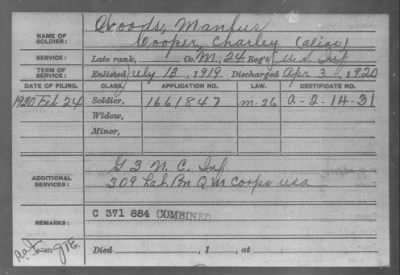 Woods, Manfus
NAME OF SOLDIER: Cooper, Charley (alias)
SERVICE: Late rank, Co. M, 24 Reg't U.S. Inf
TERM OF SERVICE: Enlisted July 13, 1919. Discharged Apr 3, 1920
DATE OF FILING. CLASS. APPLICATION NO. LAW. CERTIFICATE NO.
1930 Feb 24 Soldier, 1661847 m-26 A-2-14-31
Widow,
Minor,
G 3 N.C. Inf
ADDITIONAL SERVICES: 309 Lab. Bn QM Corps USA
REMARKS: C 371 884 COMBINED
Died , 1 , at